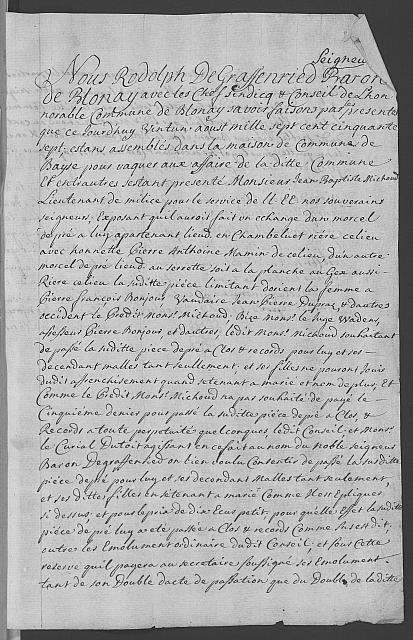 Seigneu
Nous Rodolph De Graffenried Baron
de Blonay avec les Chef Sindicq & Conseil de L'hon
norable Commune de Blonay savoir faisons par les presentes
que ce Jourdhuy Vintun aoust mille sept cent cinquante
sept, estans assemblés dans la maison de Commune de
Bayse pour vaquer aux affaire de la ditte Commune
Et entrautres sestant presenté Monsieur Jean Baptiste Michoud
Lieutenant de milice pour le service de LL. EE. nos souverains
seigneurs, Exposant quil auroit fait un echange d'un morcel
de pré a luy apartenant lieud. en Chambeluet riere ce lieu
avec honniette Pierre Anthoine Mamin de ce lieu, d'un autre
morcel de pré lieud. au sorrette soit a la planche au Gex aussi
Riere ce lieu la suditte piéce limitant dorient la femme a
Pierre François Bonjour, Vaudaire Jean Pierre Dupraz & dautres
occident le Predit Monsr. Michoud, Bize Monsr. le Juge Wadens,
assesseur Pierre Bonjour, et dautres, ledit Monsr. Michoud souhaitant
de passé la suditte piéce de pré a Clos & records pour luy et ses
decendant malles tant seulement, et ses filles ne pouront Jouir
dudit affrenchissement quand setenant a marié et nom de plus, Et
Comme le Predit Monsr. Michoud na pas souhaité de payé le
Cinquième denier pour passé la suditte piéce de pré a Clos, &
Records a toute perpetuité quelconques ledit Conseil et Monsr.
le Curial Dutoit agissant en ce fait au nom du Noble seigneur
Baron Degraffenried on bien voulu Consentir de passé la susditte
piéce de pré pour luy et ses decendant Malles tant seulement,
et ses dittes filles en setenant a marié Comme Il est Expliques
si dessus, et pour le prix de dix Ecus petit, pour quelle Est et la suditte
piéce de pré luy a ele passée a Clos & records Comme sus est dit,
outre les Emolument ordinaire dudit Conseil, et sous Cette
reserve quil payera au secretaire soussigné ses Emolument
tant de son Double dacte de passation que du Double de la ditte